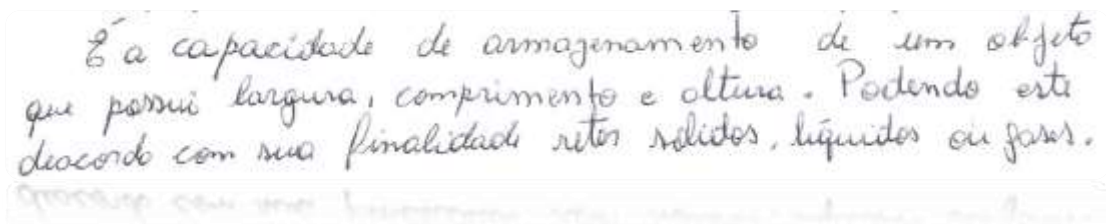 É a capacidade de armazenamento de um objeto
que possui largura, comprimento e altura. Podendo este
deacordo com sua finalidade reter sólidos, líquidos ou gases.